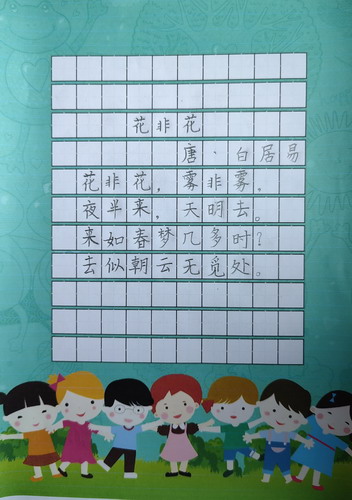 花非花
唐·白居易
花非花，雾非雾，
夜半来，天明去。
来如春梦几多时？
去似朝云无觅处。